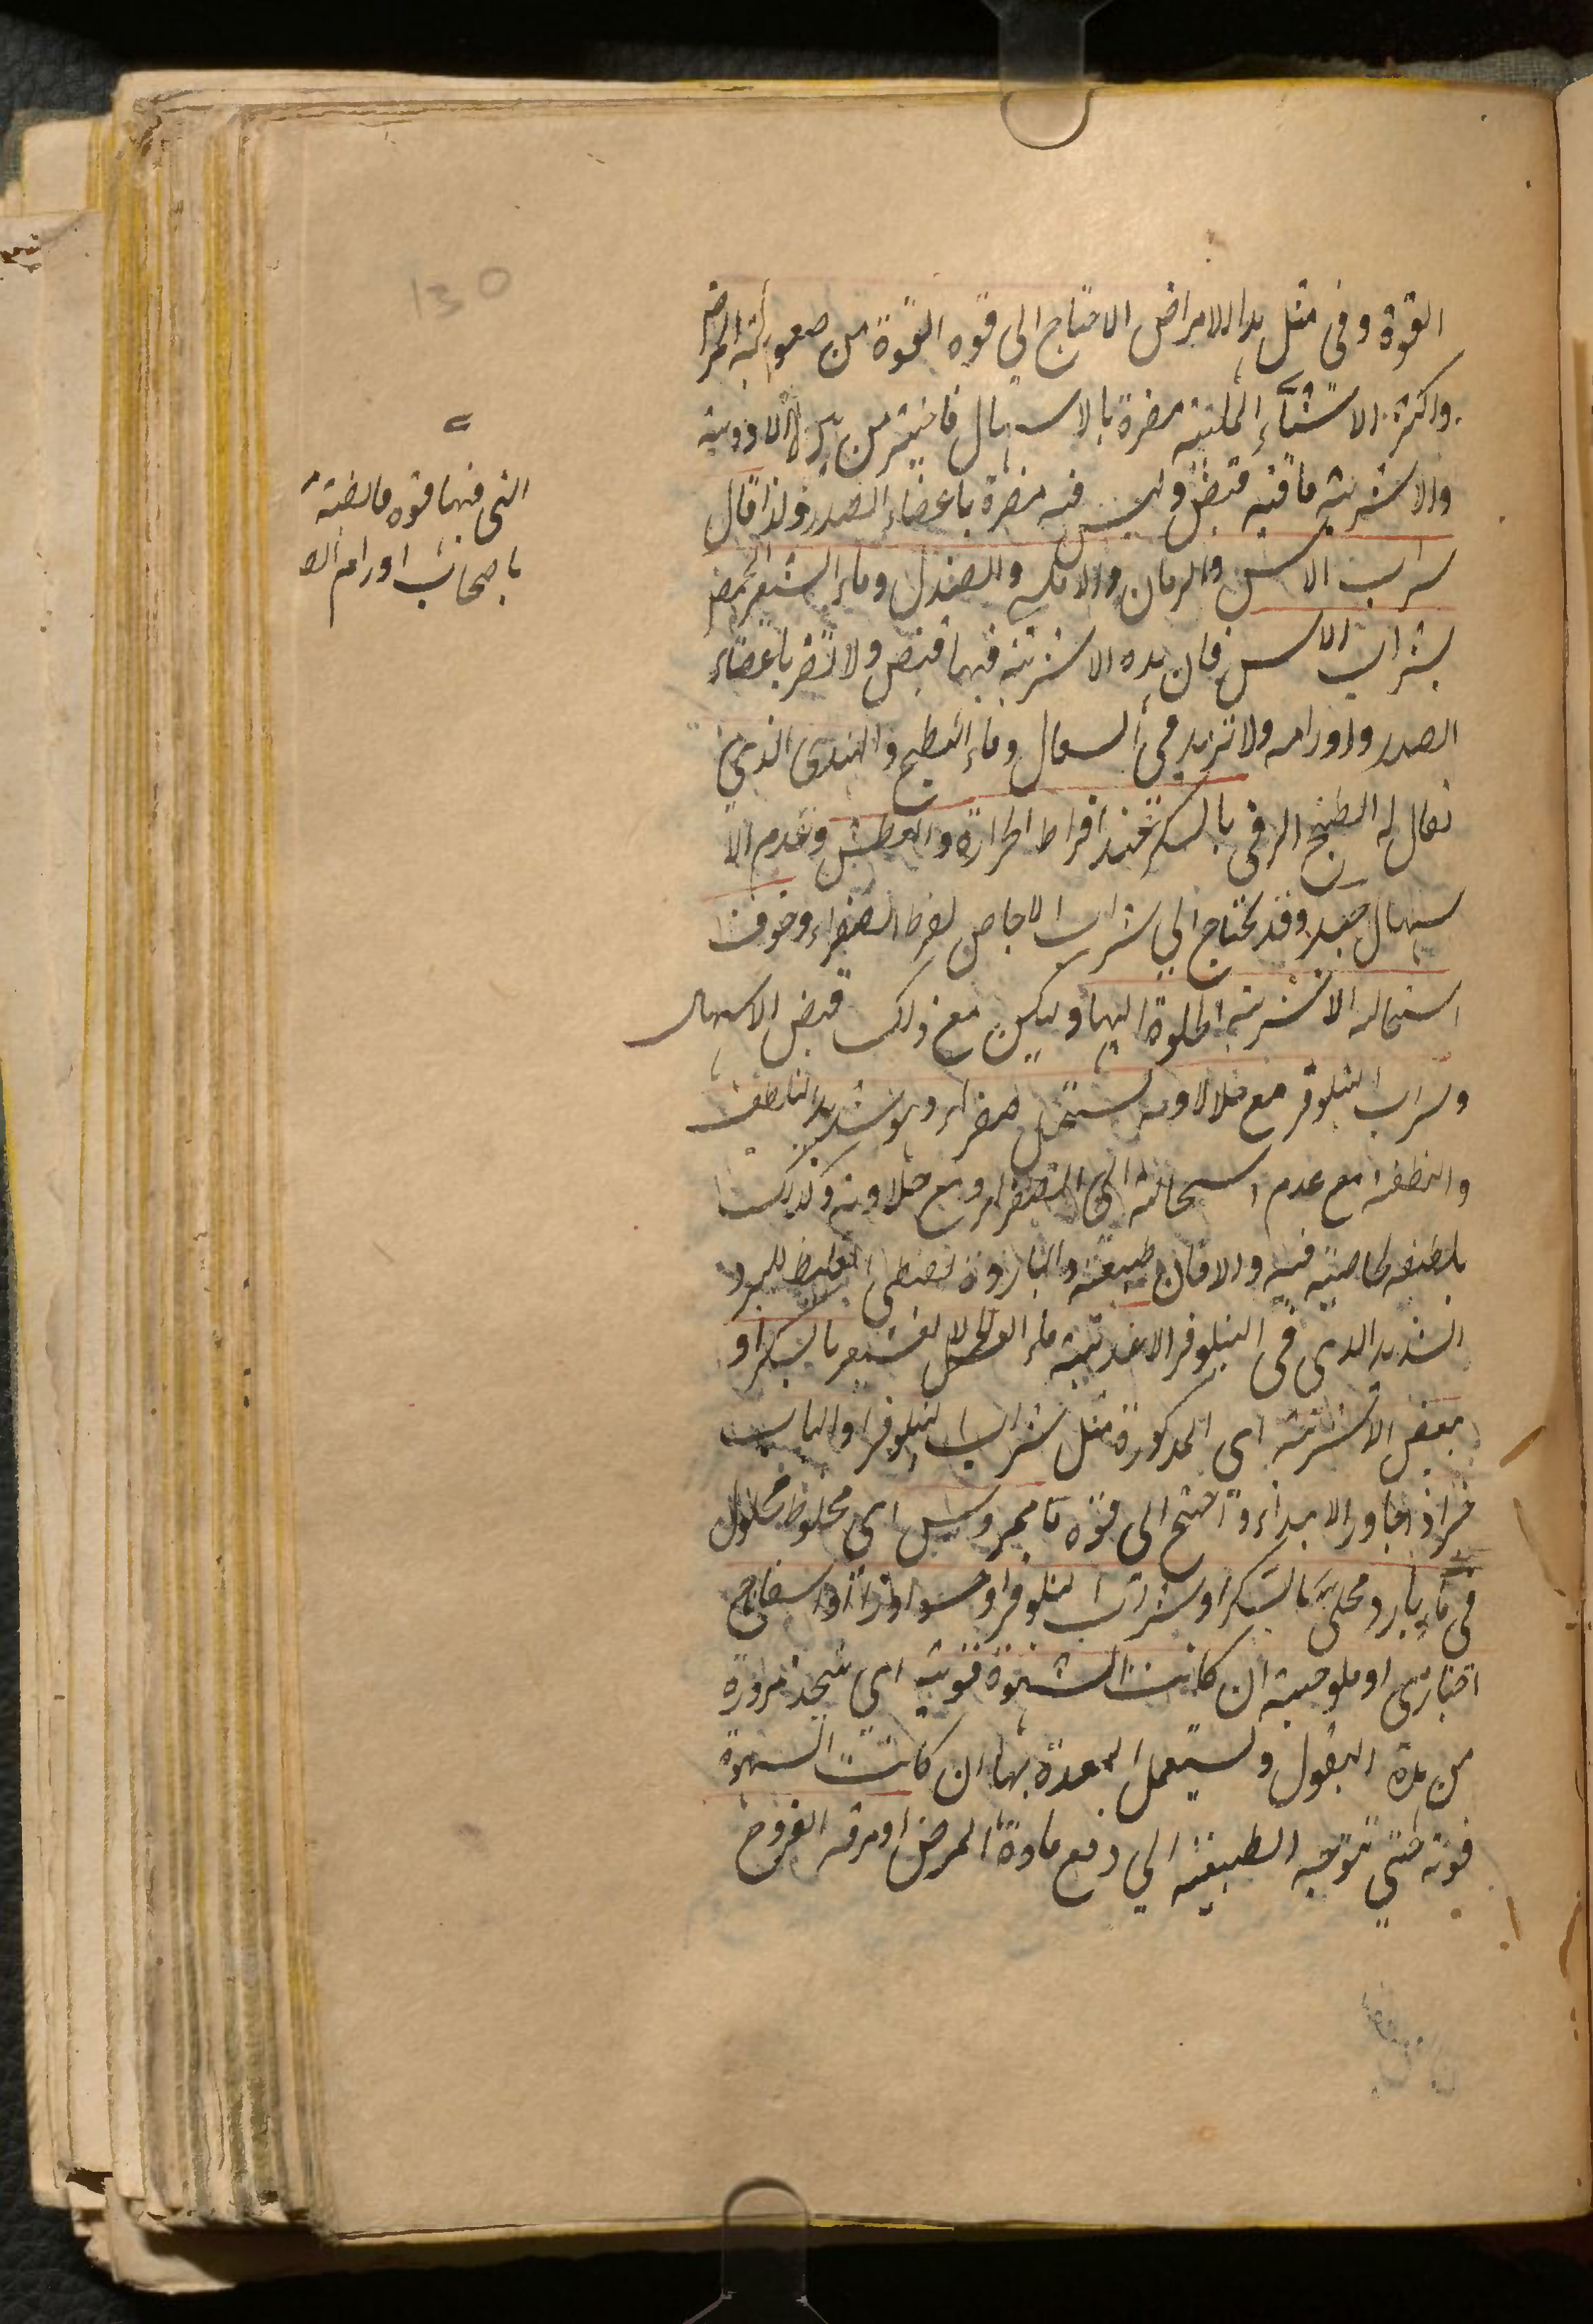 130
القوة وفى مثل هذا الامراض الاحتاج الى قوه القوة من صعوبته المرض
واكثر الاشياء الملينة مضرة بالاسهال فاختير من هذه الادوية
والاشربة ما فيه قبض وليس فيه مضرة باعضاء الصدر ولذا قال
شراب الاس والرمان والصندل وماء الشعير المحمض
بشراب الاس فان هذه الاشربة فيها قبض ولا تضر باعضاء
الصدر واورامه ولا تزيد فى السعال وماء البطيخ والهندى الذى
يقال له البطيخ الرقى بالسكر عند افراط الحرارة والعطش وعدم الا
سهال جيد وقد يحتاج الى شراب الاجاص لفرط الصفراء وخوف
استحاله الاشربة الحلوة اليها وليكن مع ذلك قبض الاسهال
وشراب النيلوفر مع حلاوته يستحيل صفراء وهو شديد التلطف
مع عدم استحالته الى الصفراء ومع حلاوته وكذلك
بلطفه لخاصية فيه والا فان طبيعته والباردة تقتضى التغليظ للبرد
الشديد الذى فى النيلوفر الاغذية ماء الشعير بالسكر او
ببعض الاشربة اى المذكورة مثل شراب النيلوفر او
خر اذ تجاوز الابتداء واحتيج الى قوة ما ممروس اى مخلوط محلول
فى ماء بارد محلى بالسكر او شراب النيلوفر او حسو او اسفاناج
اخبازى او ملوخية ان كانت الشهوة قوية اى يتخذ مزورة
من هذه البقول وليستعمل المعدة بها ان كانت الشهوة
قوته حتى تتوجه الطبيعة الى دفع مادة المرض او مرقه الفروخ
التى فيها قوه قابضة
باصحاب اورام الص